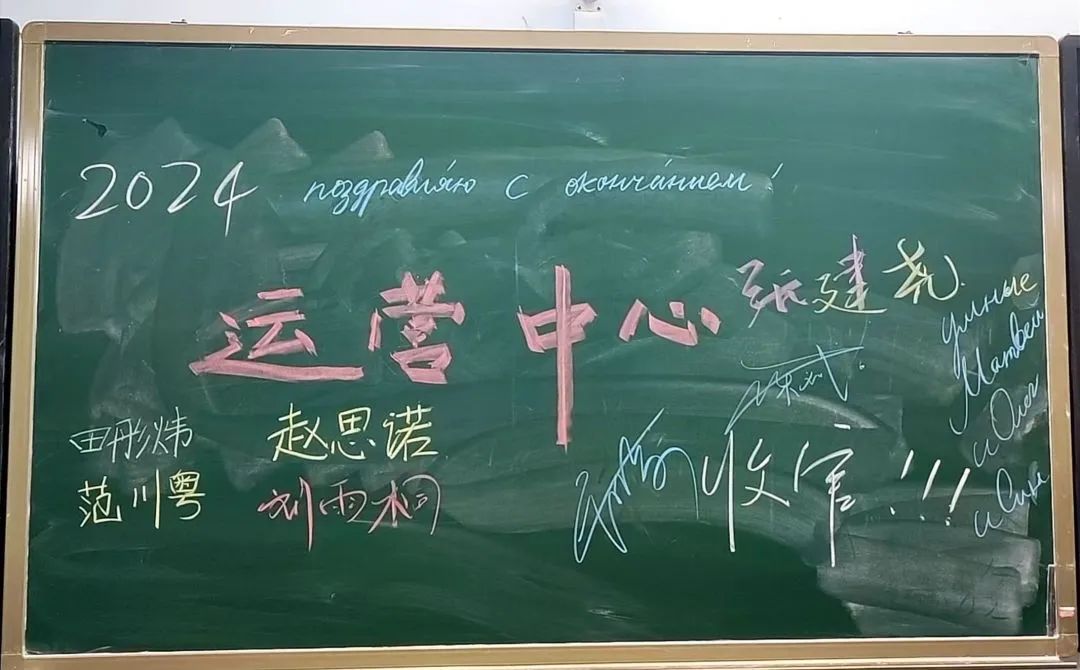 2024 поздравляю с окончанием!
运营中心 张建尧
умные
Матвей
и Олег
и Сика
田彤炜 赵思诺
范川粤 刘雨桐
收官!!!